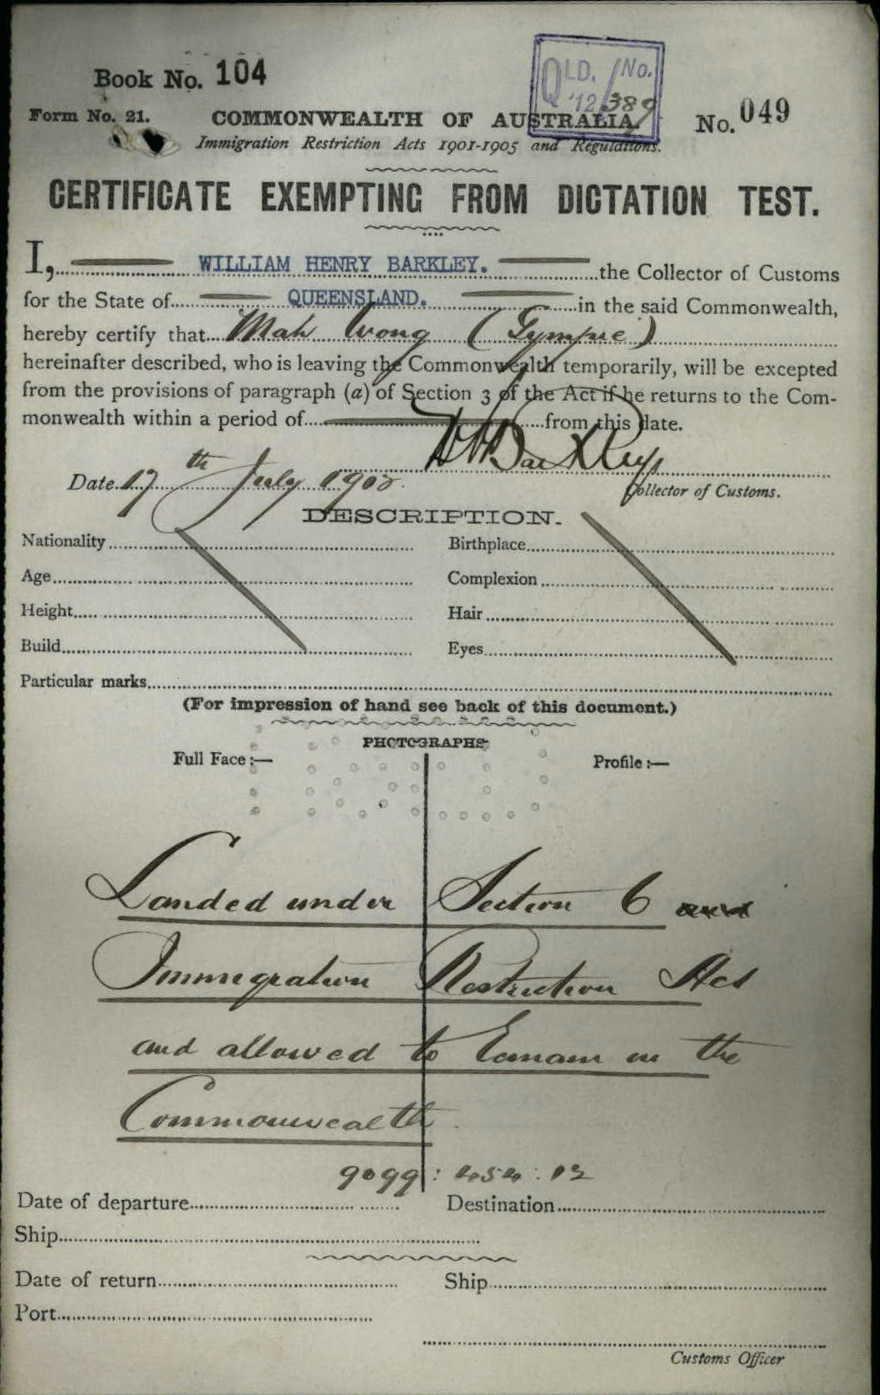 Book No. 104
QLD. No.
'12/389
Form No. 21.
COMMONWEALTH OF AUSTRALIA.
No. 049
Immigration Restriction Acts 1901-1905 and Regulations.
CERTIFICATE EXEMPTING FROM DICTATION TEST.
I, WILLIAM HENRY BARKLEY. the Collector of Customs
for the State of QUEENSLAND. in the said Commonwealth,
hereby certify that Mah Wong (Gympie)
hereinafter described, who is leaving the Commonwealth temporarily, will be excepted
from the provisions of paragraph (a) of Section 3 of the Act if he returns to the Com-
monwealth within a period of from this date.
WHBarkley
Date 17th July 190
Collector of Customs.
DESCRIPTION.
Nationality
Birthplace
Age
Complexion
Height
Hair
Build
Eyes
Particular marks
(For impression of hand see back of this document.)
PHOTOGRAPHS
Full Face :—
Profile :—
Landed under Section 6
Immigration Restriction Act
and allowed to remain in the
Commonwealth.
Date of departure
Destination
Ship
Date of return
Ship
Port
Customs Officer